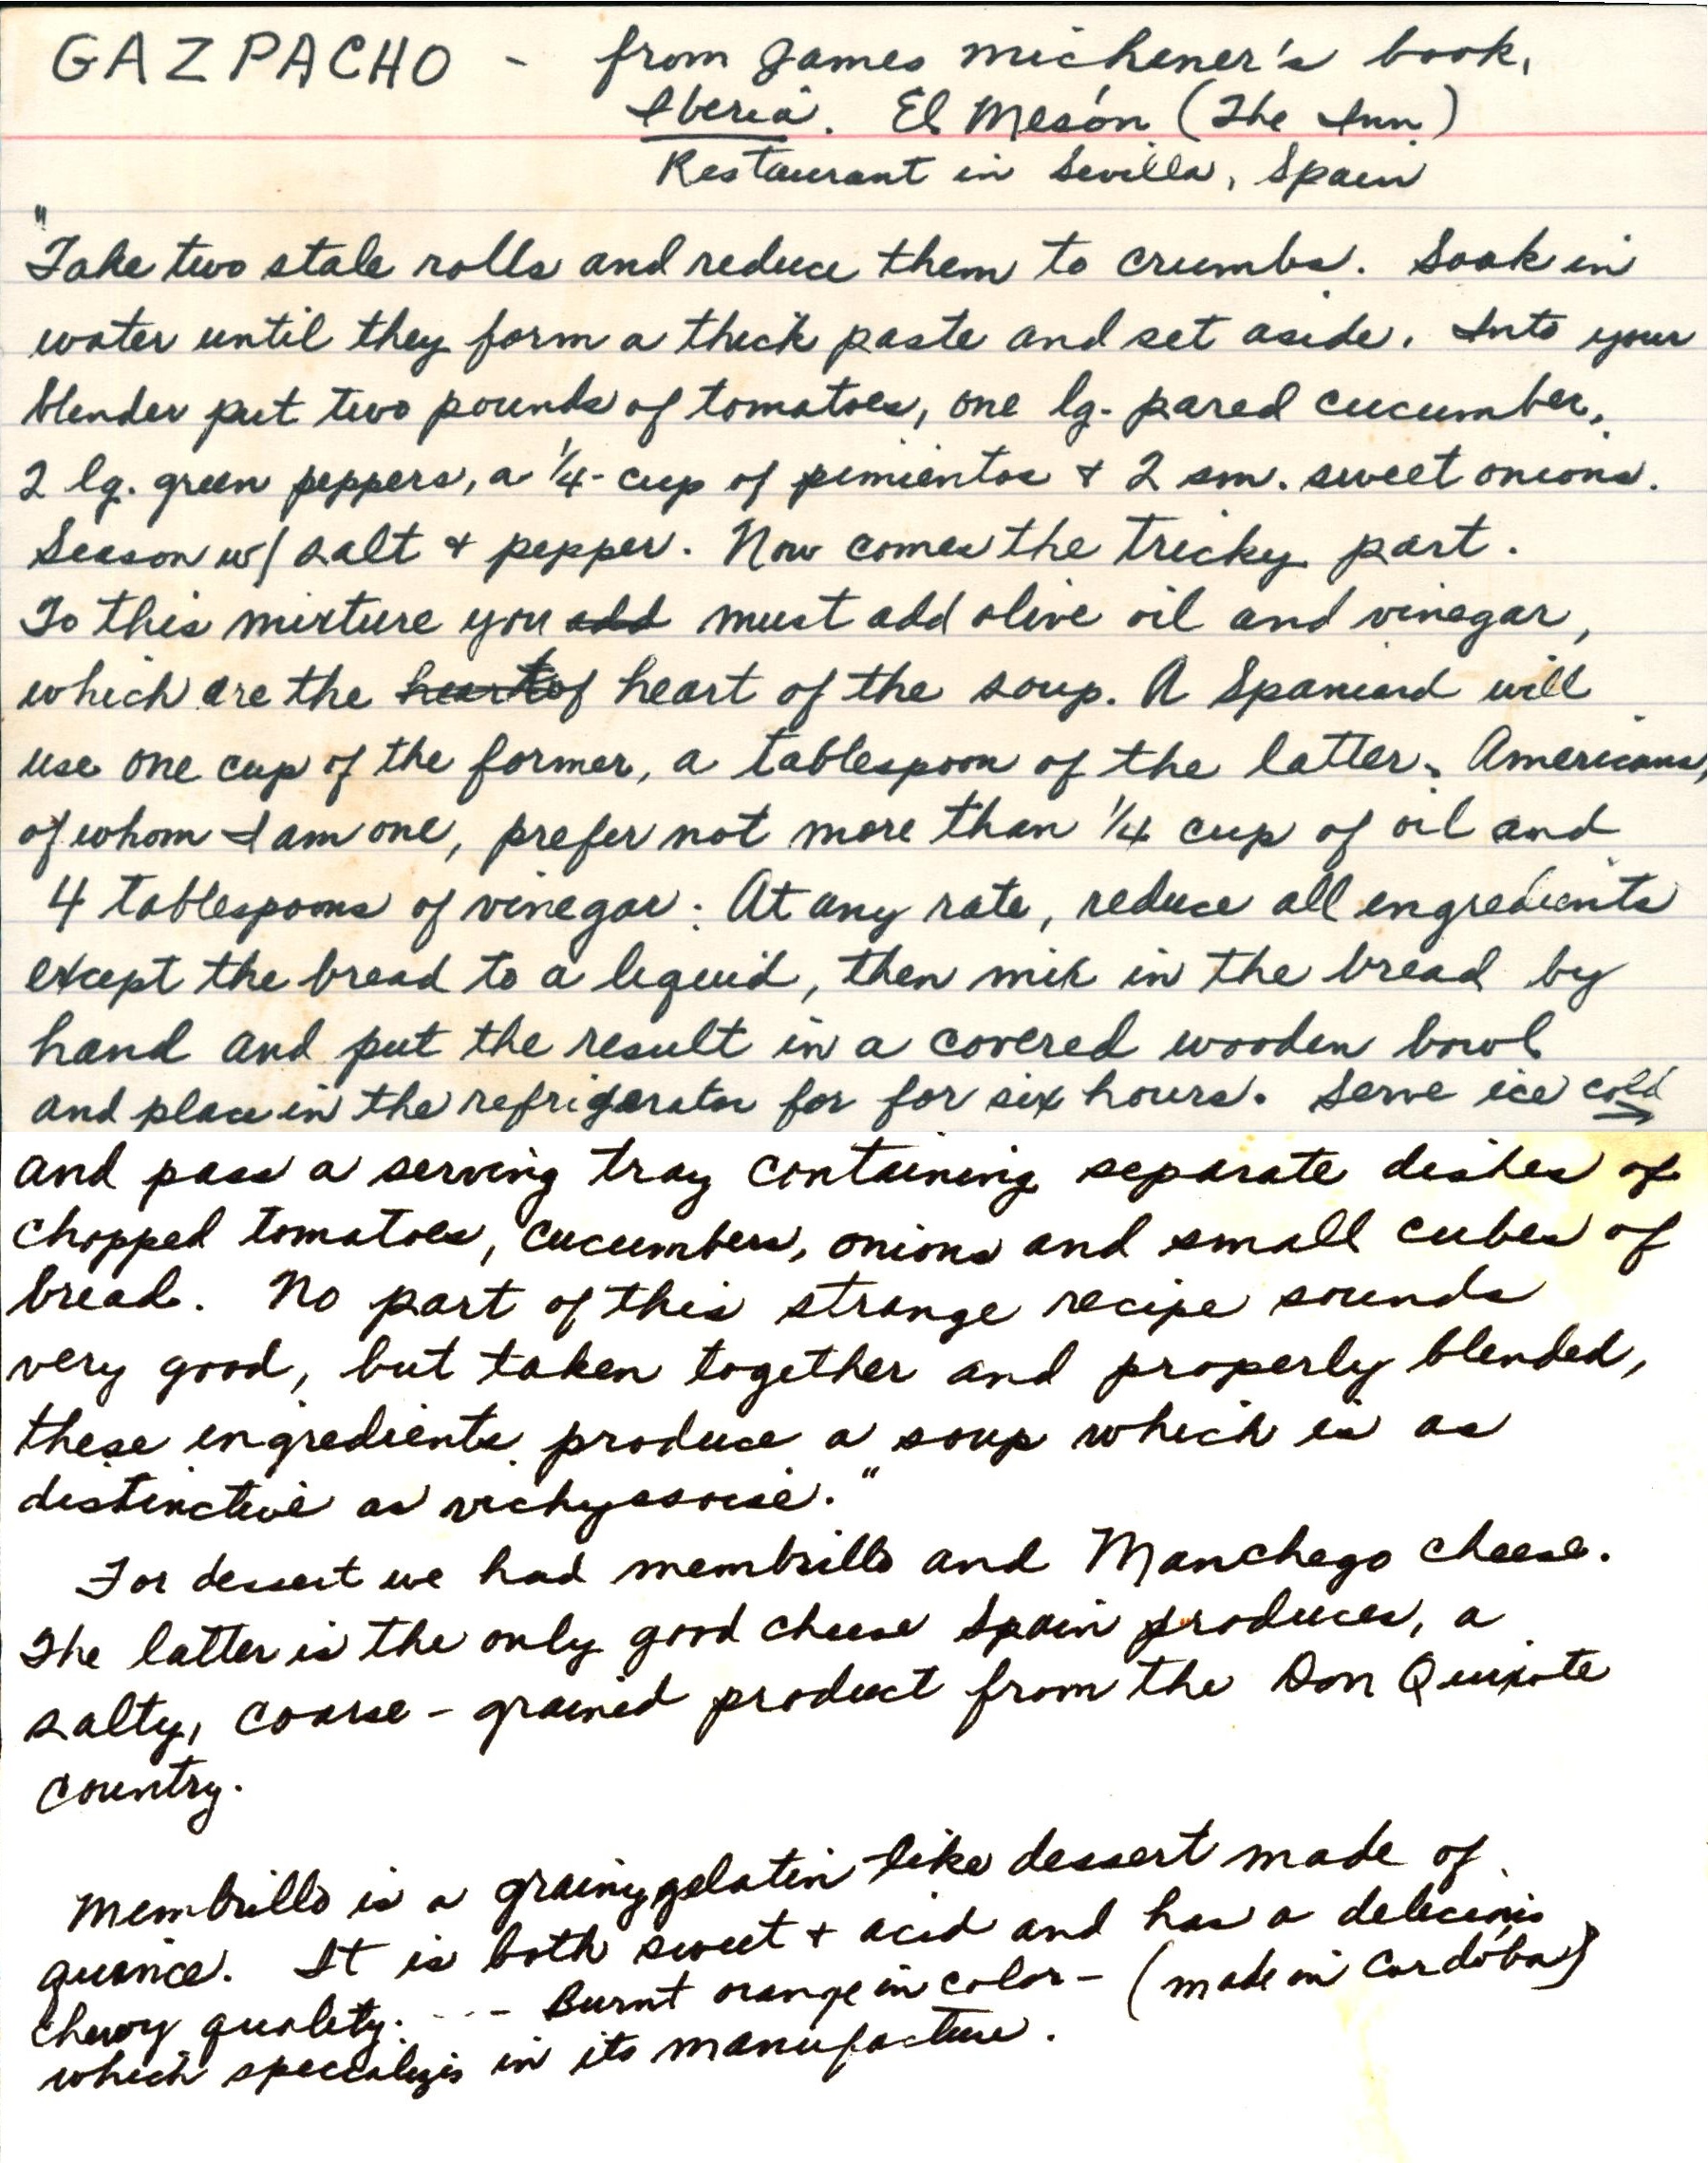 GAZPACHO - from James Michener's book,
Iberia. El Mesón (The Inn)
Restaurant in Sevilla, Spain
"Take two stale rolls and reduce them to crumbs. Soak in
water until they form a thick paste and set aside. Into your
blender put two pounds of tomatoes, one lg. pared cucumber,
2 lg. green peppers, a 1/4-cup of pimientos + 2 sm. sweet onions.
Season w/ salt + pepper. Now comes the tricky part.
To this mixture you add must add olive oil and vinegar,
which are the heart of heart of the soup. A Spaniard will
use one cup of the former, a tablespoon of the latter. Americans,
of whom I am one, prefer not more than 1/4 cup of oil and
4 tablespoons of vinegar. At any rate, reduce all ingredients
except the bread to a liquid, then mix in the bread by
hand and put the result in a covered wooden bowl
and place in the refrigerator for for six hours. Serve ice cold →
and pass a serving tray containing separate dishes of
chopped tomatoes, cucumbers, onions and small cubes of
bread. No part of this strange recipe sounds
very good, but taken together and properly blended,
these ingredients produce a soup which is as
distinctive as vichyssoise."
For dessert we had membrillo and Manchego cheese.
The latter is the only good cheese Spain produces, a
salty, coarse-grained product from the Don Quixote
country.
Membrillo is a grainy gelatin like dessert made of
quince. It is both sweet + acid and has a delicious
chewy quality. --- Burnt orange in color - (made in Cordóba)
which specializes in its manufacture.